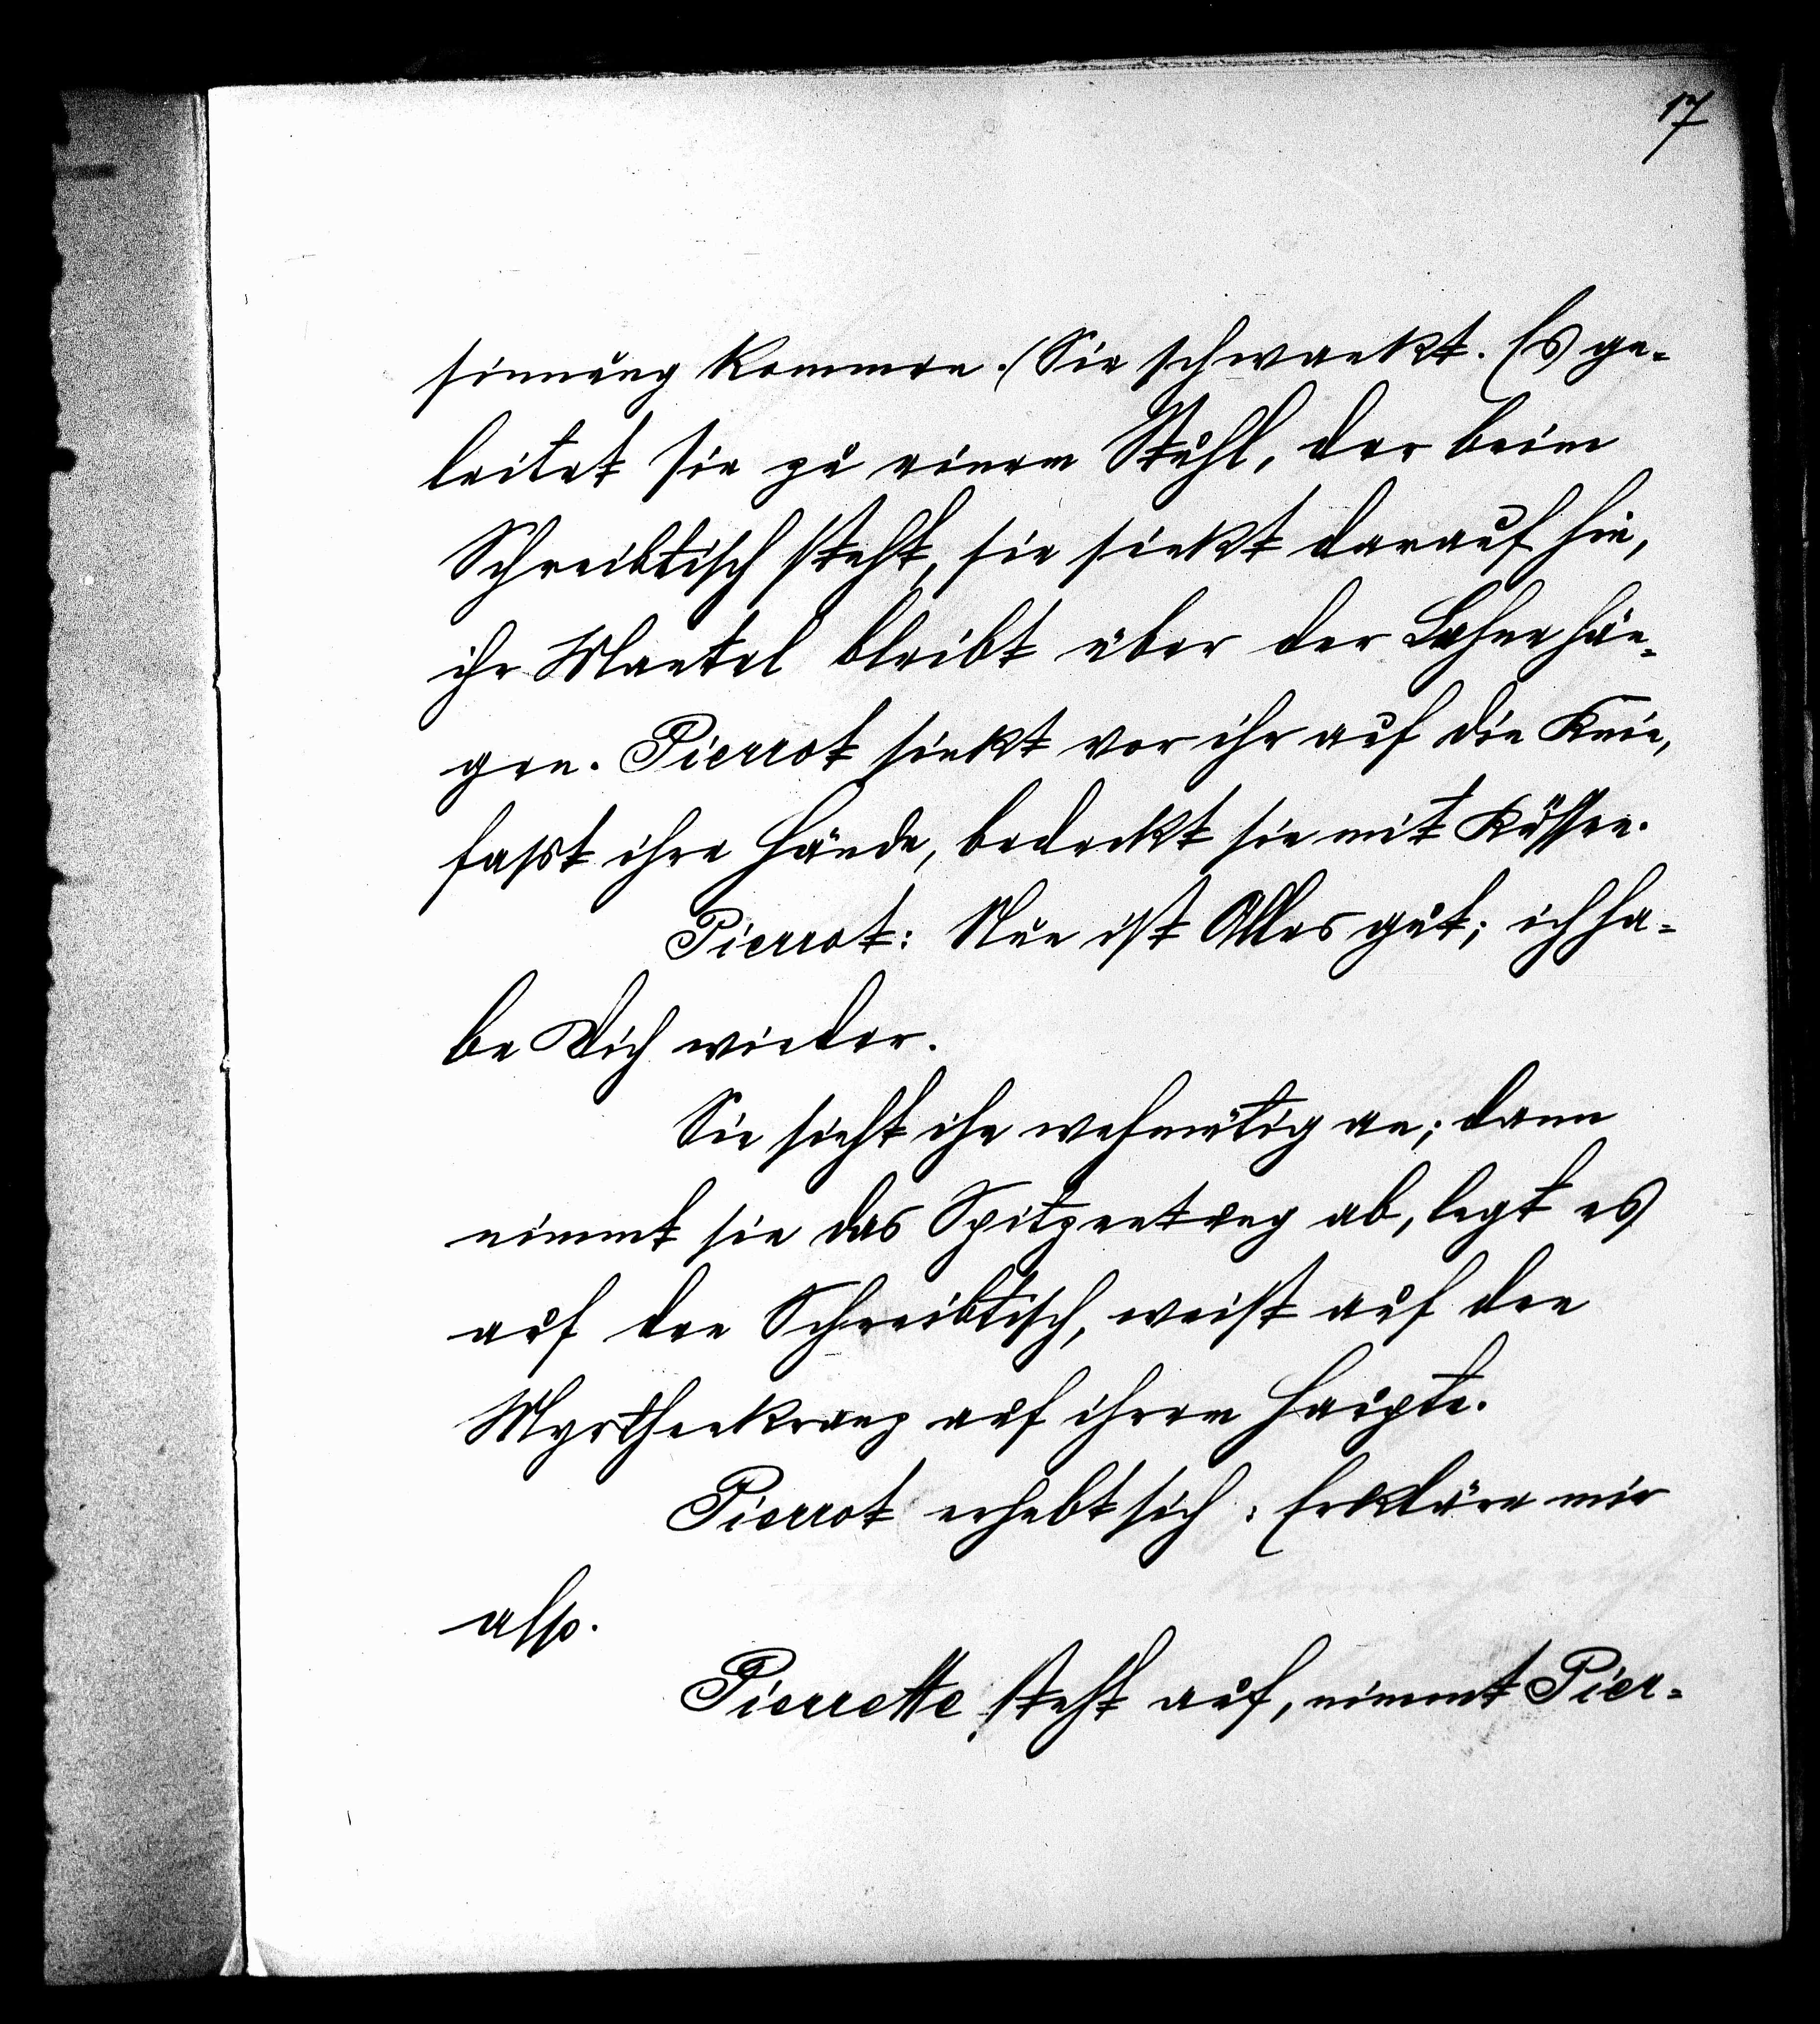 17
sinnung kommen. (Sie schwankt. Es ge-
leitet sie zu einem Stuhl, der beim
Schreibtisch steht, sie sinkt darauf hin,
ihr Mantel bleibt über der Lehne hän-
gen. Pierrot sinkt vor ihr auf die Knie,
fasst ihre Hände, bedeckt sie mit Küssen.
Pierrot: Nun ist Alles gut; ich ha-
be Dich wieder.
Sie sieht ihn wehmütig an; dann
nimmt sie das Spitzentuch ab, legt es
auf den Schreibtisch, weist auf den
Myrthenkranz auf ihrem Haupte.
Pierrot erhebt sich: Erkläre mir
also.
Pierrette steht auf, nimmt Pier-